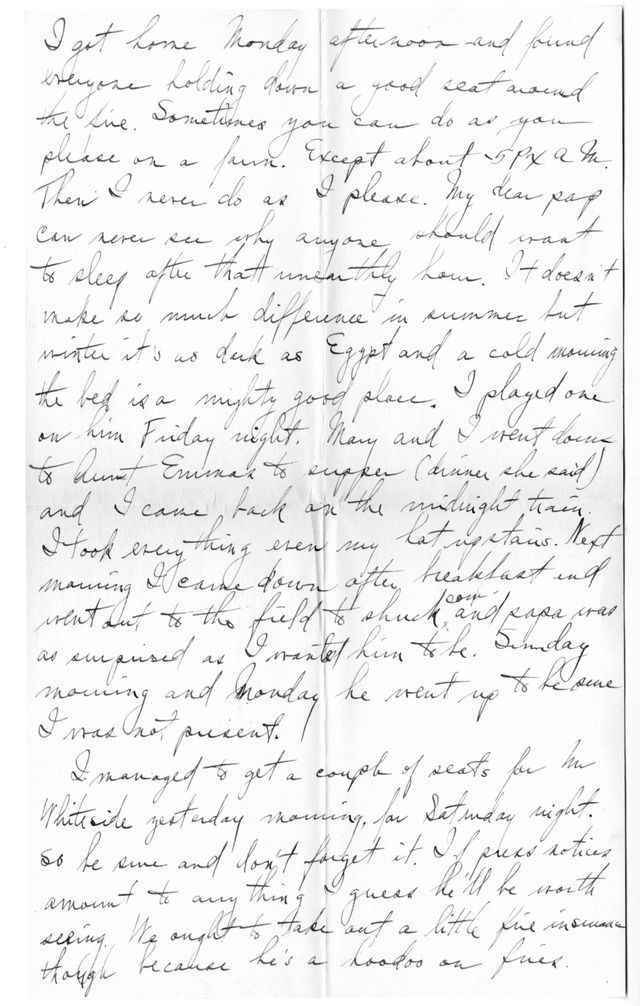 I got home Monday afternoon and found
everyone holding down a good seat around
the fire. Sometimes you can do as you
please on a farm. Except about 5 A M.
Then I never do as I please. My dear pap
can never see why anyone should want
to sleep after that unearthly hour. It doesn't
make so much difference in summer but
winter it's as dark as Egypt and a cold morning
the bed is a mighty good place. I played one
on him Friday night. Mary and I went down
to Aunt Emmas to supper (dinner she said)
and I came back on the midnight train.
I took everything even my hat upstairs. Next
morning I came down after breakfast and
went out to the field to shuck corn and papa was
as surprised as I wanted him to be. Sunday
morning and Monday he went up to be sure
I was not present.
I managed to get a couple of seats for Mr
Whiteside yesterday morning, for Saturday night.
so be sure and don't forget it. If press notices
amount to anything I guess he'll be worth
seeing. We ought to take out a little fire insurance
though because he's a hoodoo on fires.